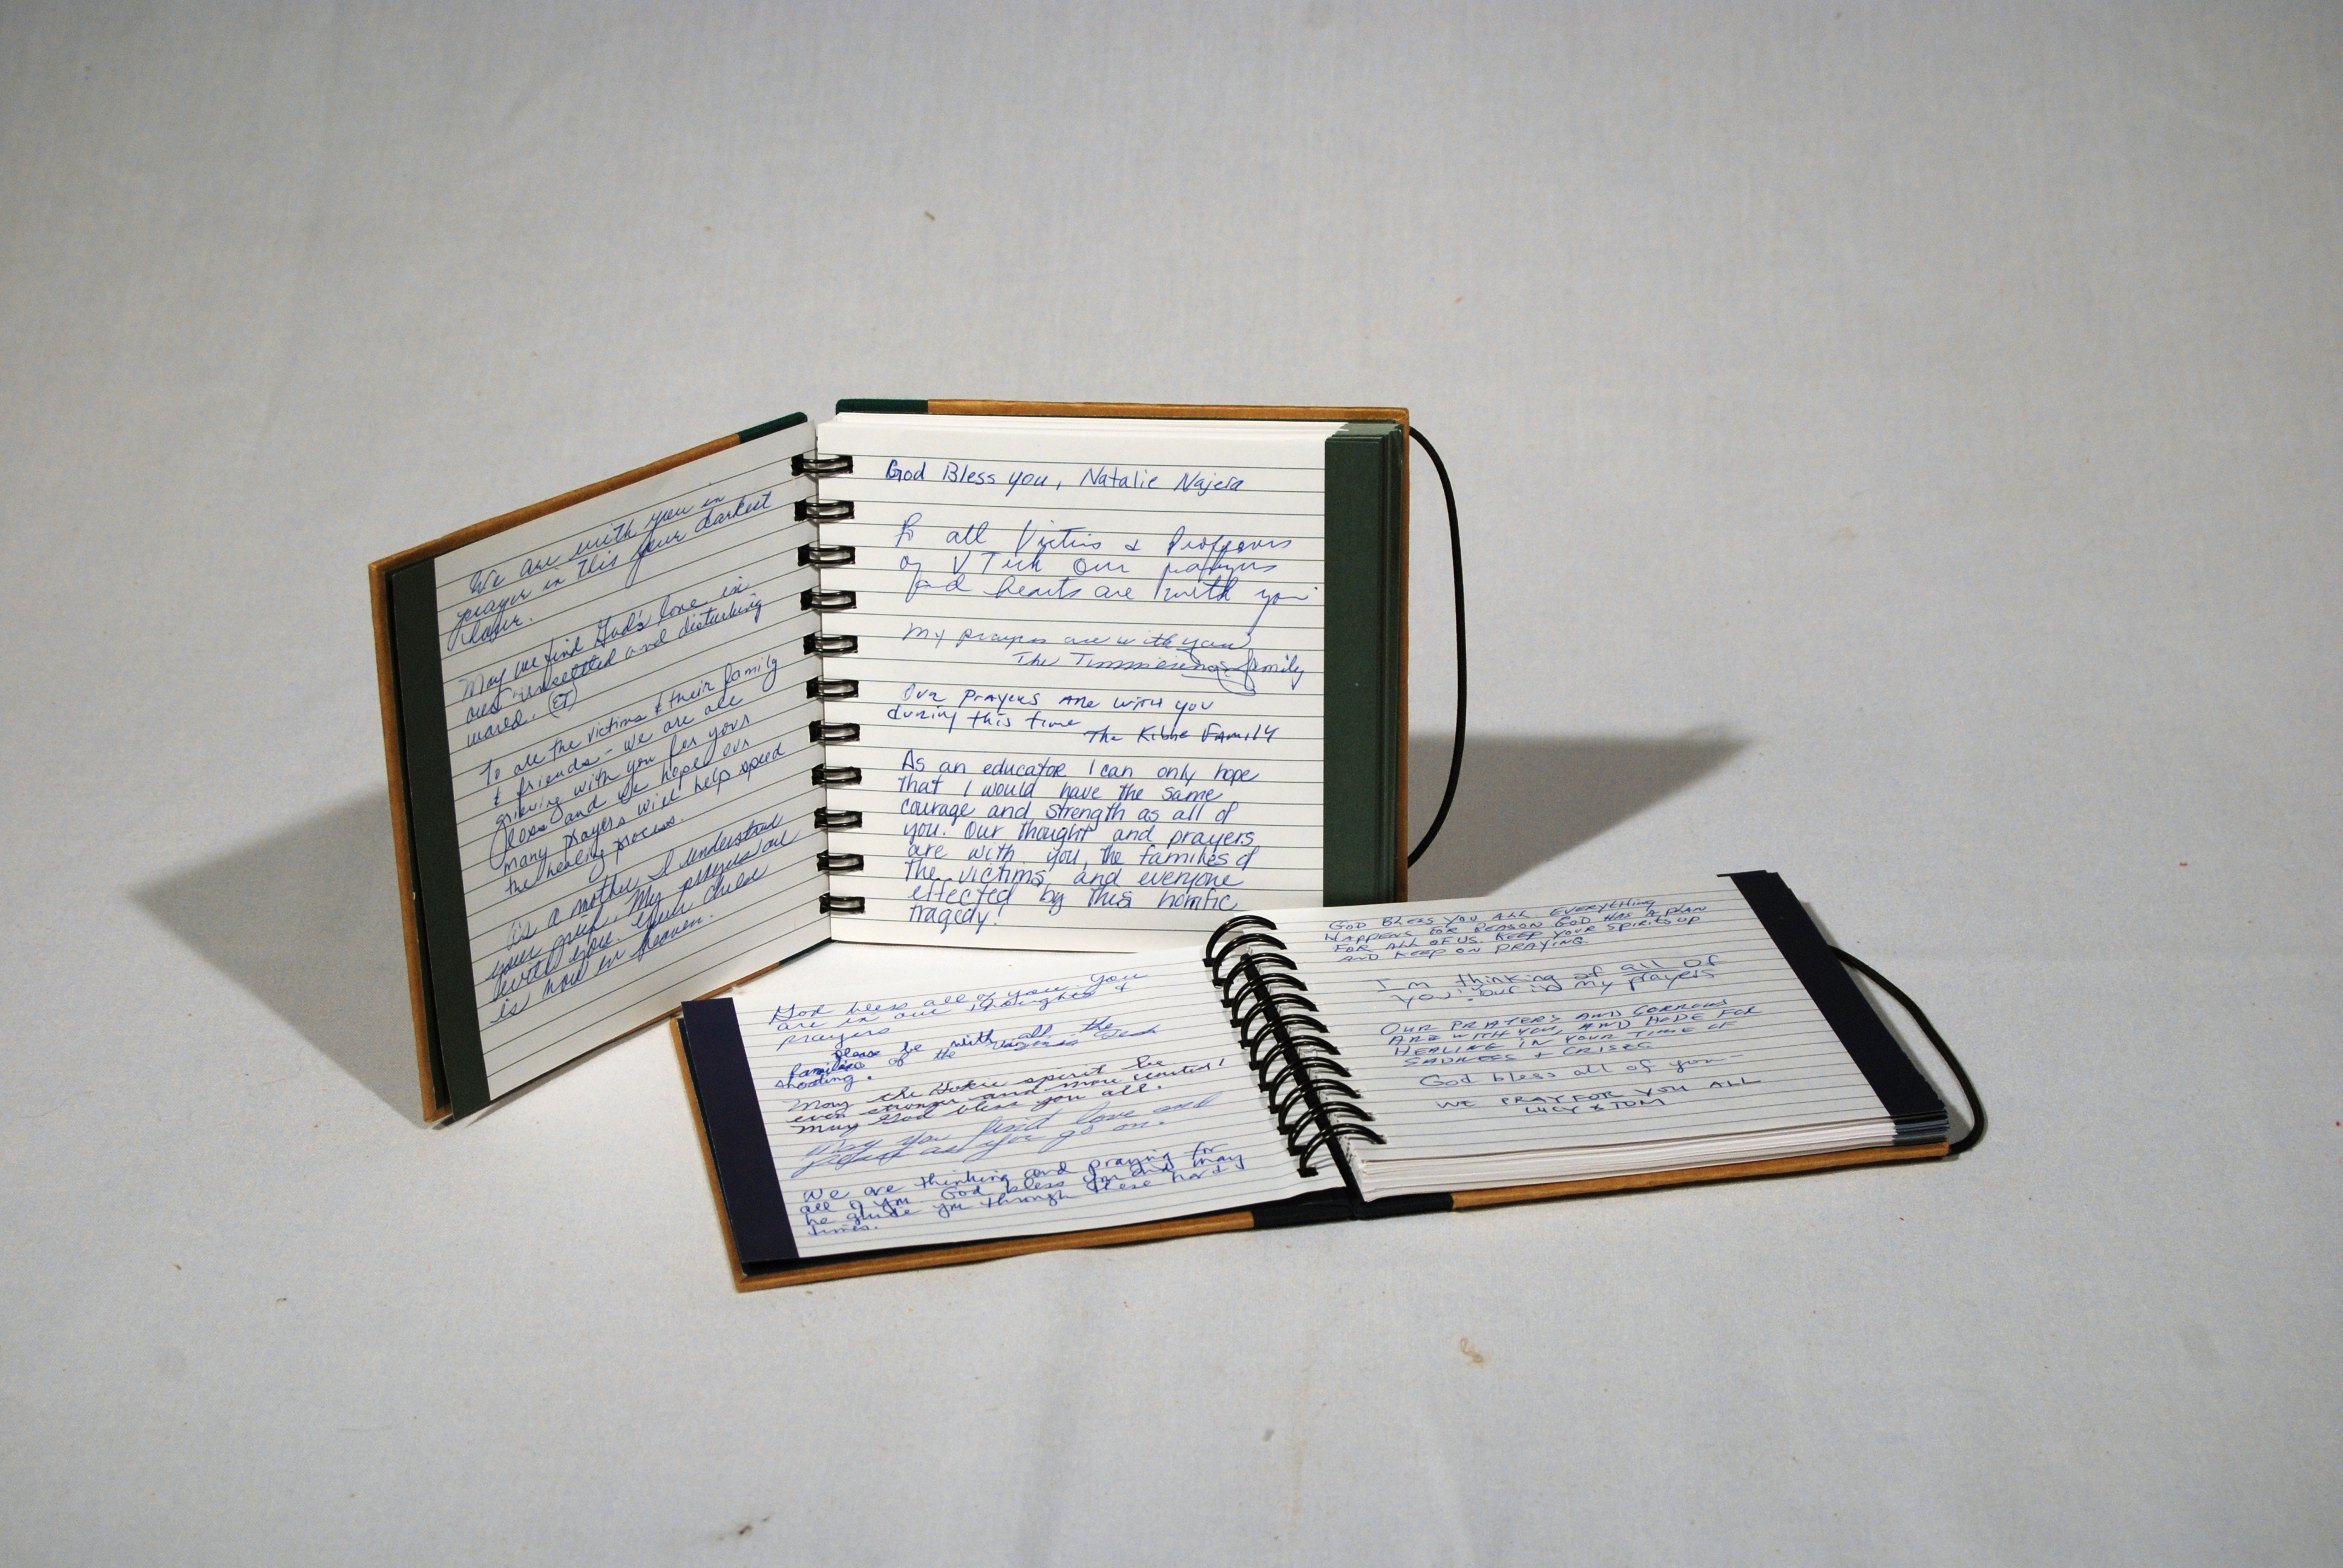 We are with you in
prayer in this your darkest
hour.
May we find God's love in
our unsettled and disturbing
world. ET
To all the victims & their family
& friends - we are all
grieving with you for your
loss and we hope our
many prayers will help speed
the healing process.
As a mother I understand
your grief. My prayers are
with you. Your child
is now in heaven.
God Bless you, Natalie Najera
To all Victims & Professors
of V Tech Our prayers
and hearts are with you
My prayers are with you
The family
Our prayers are with you
during this time
The Kibbe Family
As an educator I can only hope
that I would have the same
courage and strength as all of
you. Our thought and prayers
are with you, the families of
the victims and everyone
effected by this horrific
tragedy!
God bless all of you. You
are in our thoughts &
prayers
please be with all the
families of the Virginia Tech
shooting.
May the Hokie spirit be
even stronger and more united!
May God bless you all.
May you find love and
as you go on.
We are thinking and praying for
all of you God bless you and may
he guide you through these hard
times.
GOD BLESS YOU ALL. EVERYTHING
HAPPENS FOR REASON GOD HAS A PLAN
FOR ALL OF US. KEEP YOUR SPIRITS UP
AND KEEP ON PRAYING.
I'm thinking of all of
you! Your in my prayers
OUR PRAYERS AND SORROWS
ARE WITH YOU, AND HOPE FOR
HEALING IN YOUR TIME OF
SADNESS + CRISES
God bless all of you-
WE PRAY FOR YOU ALL
LUCY & TOM